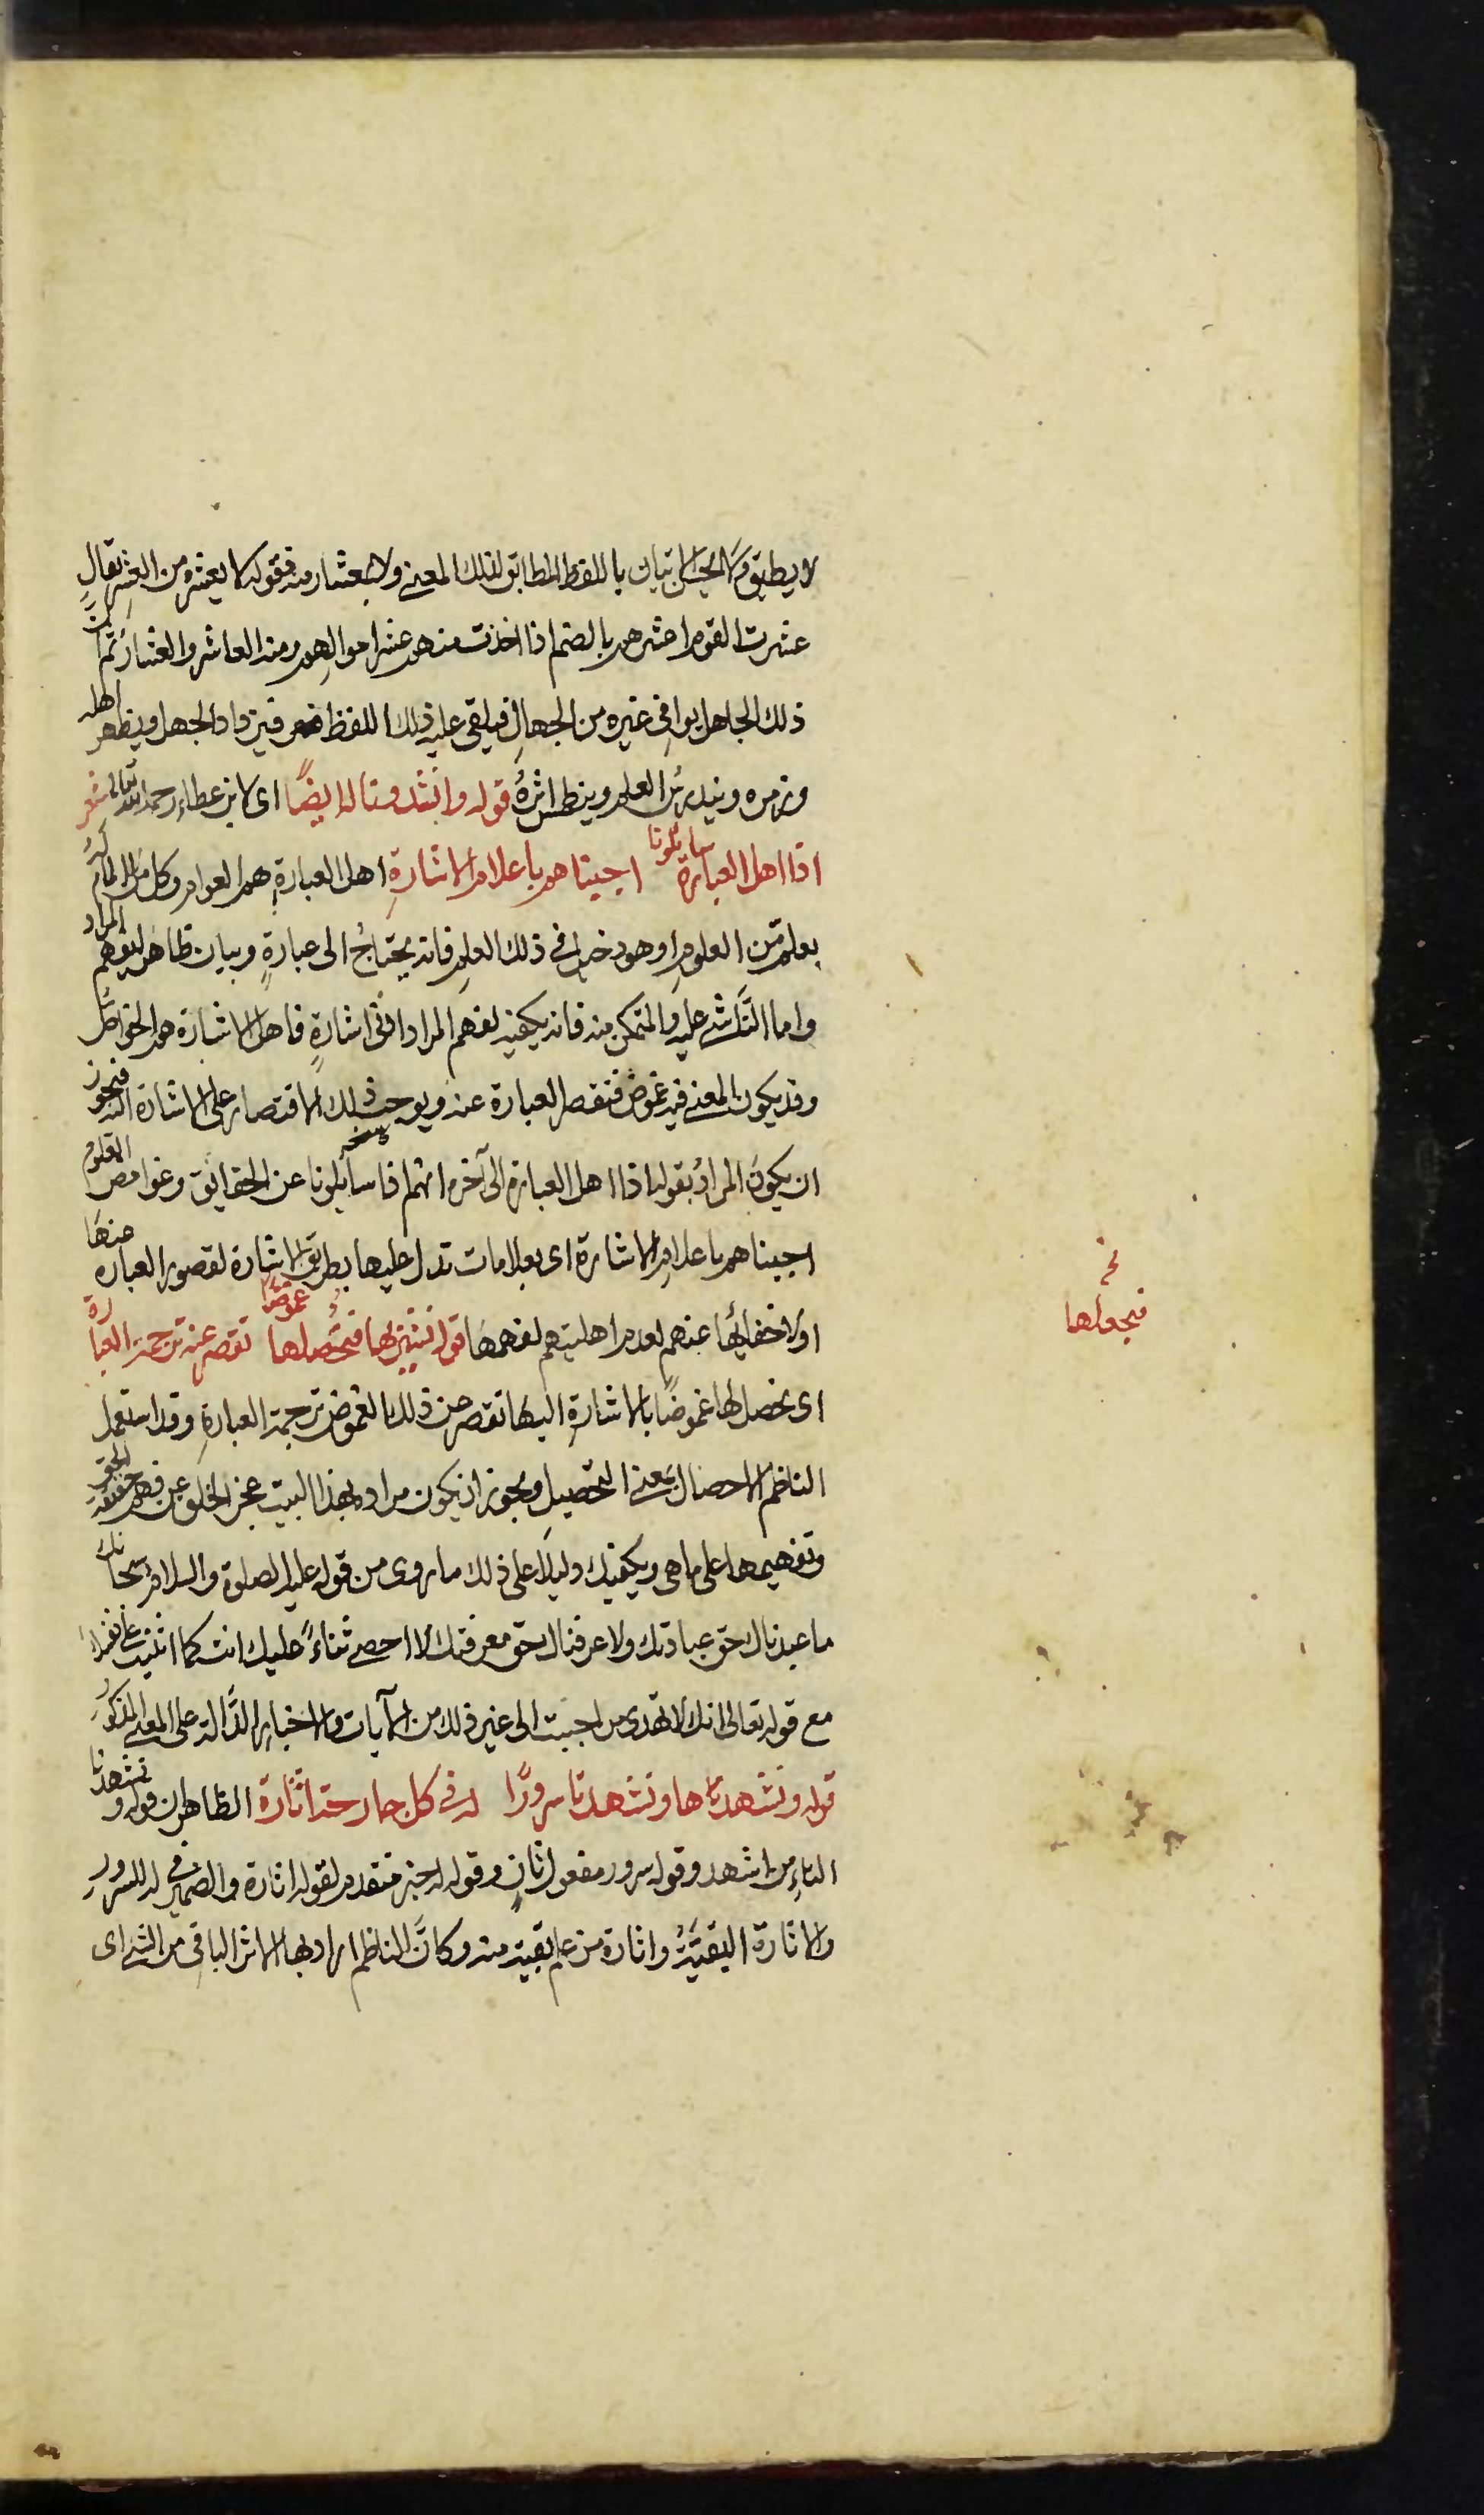 لا يطيق ولا يحسن الاتيان باللفظ المطابق لذلك المعنى ولا بمعشار منه فقوله لا يعشره من العشر يقال
عشرت القوم اعشرهم بالضم اذا اخذت منهم عشر اموالهم ومنه العاشر والعشار ثم ان
ذلك الجاهل يوافى غيره من الجهال فيلقى عليه ذلك اللفظ فيزداد الجهل ويظهر اهله
وزمره ويندرس العلم وينطمس اثره قوله وانشدوناله ايضًا اى لابن عطاء رحمه الله تعالى شعر
اذا اهل العبارة سايلونا اجبناهم باعلام الاشارةِ اهل العبارة هم العوام وكل من له المام
بعلم من العلوم او هو دخيل فى ذلك العلم فانه يحتاجُ الى عبارةٍ وبيان ظاهر ليفهم المراد
واما الناشى عليه والمتمكن منه فانه يكفيه لفهم المراد ادنى اشارةٍ فاهل الاشارة هم الخواص
وقد يكون المعنى فيه غموض فتقصر العبارة عنه ويوجب ذلك الاقتصار على الاشارة اليه فيجوز
ان يكون المرادُ بقوله اذا اهل العبارة الى آخره انهم اذا سايلونا عن الحقايق وغوامض العلوم
اجبناهم باعلام الاشارة اى بعلامات تدل عليها بطريق الاشارة لقصور العبارة عنها
اولاخفائها عنهم لعدم اهليتهم لفهمها قوله نشير بها فنحصلها غموضا تقصر عنه ترجمة العبارة
اى نحصل لها غموضًا بالاشارةِ اليها تقصر عن ذلك الغموض ترجمة العبارةِ وقد استعمل
الناظم الاحصال بمعنى التحصيل ويجوز ان يكون مراده بهذا البيت عجز الخلق عن فهم حقيقة الحق
وتفهيمها على ما هى ويكفيك دليلا على ذلك ما روى من قوله عليه الصلوة والسلام سبحانك
ما عبدناك حق عبادتك ولا عرفناك حق معرفتك لا احصى ثناءً عليك انت كما اثنيت على نفسك
مع قوله تعالى انك لا تهدى من احببت الى غير ذلك من الآيات والاخبار الدالة على المعنى المذكور
قوله ونشهدها وتشهدنا سرورًا له فى كل جارحة اثارة الظاهر ان قوله وتشهدنا
التاءِ من اشهد وقوله سرور مفعول ثانٍ وقوله له خبر متقدم لقوله اثارة والضمير فى له للسرور
والاثارة البقيَّةُ واثارة من علم بقية منه وكانَّ الناظم اراد بها الاثر الباقى من الشى اى
نخ
فنجعلها